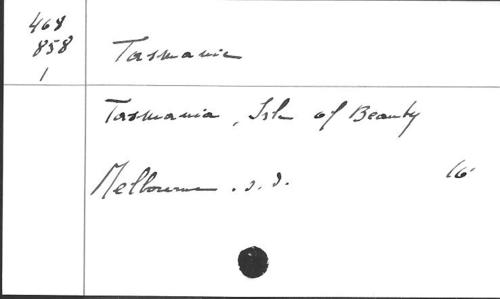 468
858
1
Tasmania
Tasmania, Isle of Beauty
Melbourne. s. d.
16°